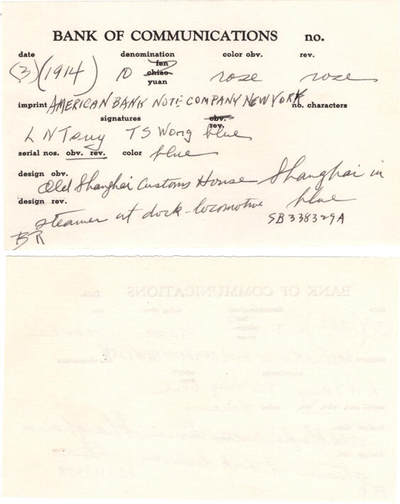 BANK OF COMMUNICATIONS no.
date denomination color obv. rev.
fen
(3) (1914) 10 chiao rose rose
yuan
imprint AMERICAN BANK NOTE COMPANY NEW YORK no. characters
signatures obv.
rev.
L N Tsuy T S Wong blue
serial nos. obv. rev. color blue
design obv.
Old Shanghai Customs House Shanghai in
design rev. blue
steamer at dock - locomotive SB338329A
BANK OF COMMUNICATIONS